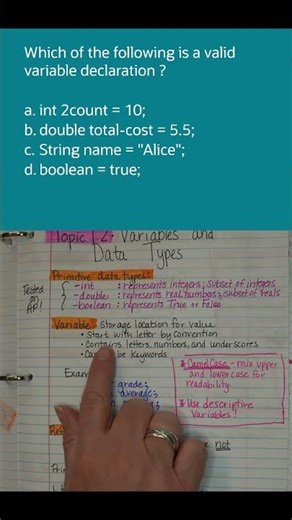 Which of the following is a valid
variable declaration ?
a. int 2count = 10;
b. double total-cost = 5.5;
c. String name = "Alice";
d. boolean = true;
Topic 1.2: Variables and
Data Types
Primitive data types:
Tested
on
AP!
-int : represents integers; Subset of integers
-double : represents real numbers; Subset of reals
-boolean : represents True or False
Variable: Storage location for value
• Start with letter by convention
• Contains letters, numbers, and underscores
be Keywords
* CamelCase - mix upper
and lowercase for
readability
* Use descriptive
Variables!
grade;
average;
not